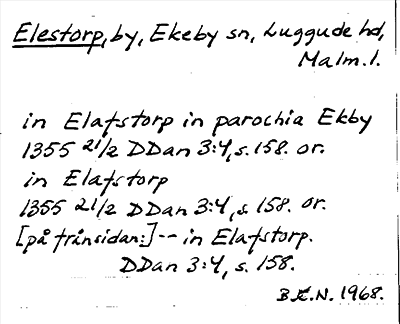 Elestorp, by, Ekeby sn, Luggude hd,
Malm. l.
in Elafstorp in parochia Ekby
1355 21/2 DDan 3:4, s. 158. or.
in Elafstorp
1355 21/2 DDan 3:4, s. 158. or.
[på frånsidan:] -- in Elafstorp.
DDan 3:4, s. 158.
B.E.N. 1968.